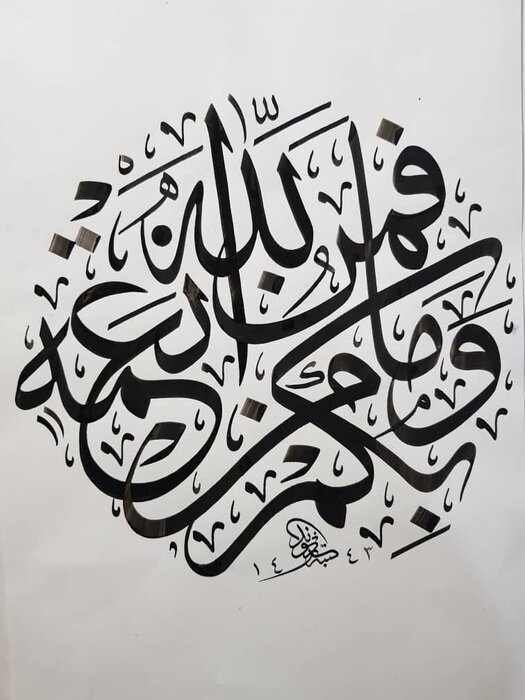 وما بكم من نعمة فمن الله
١٤٤٣